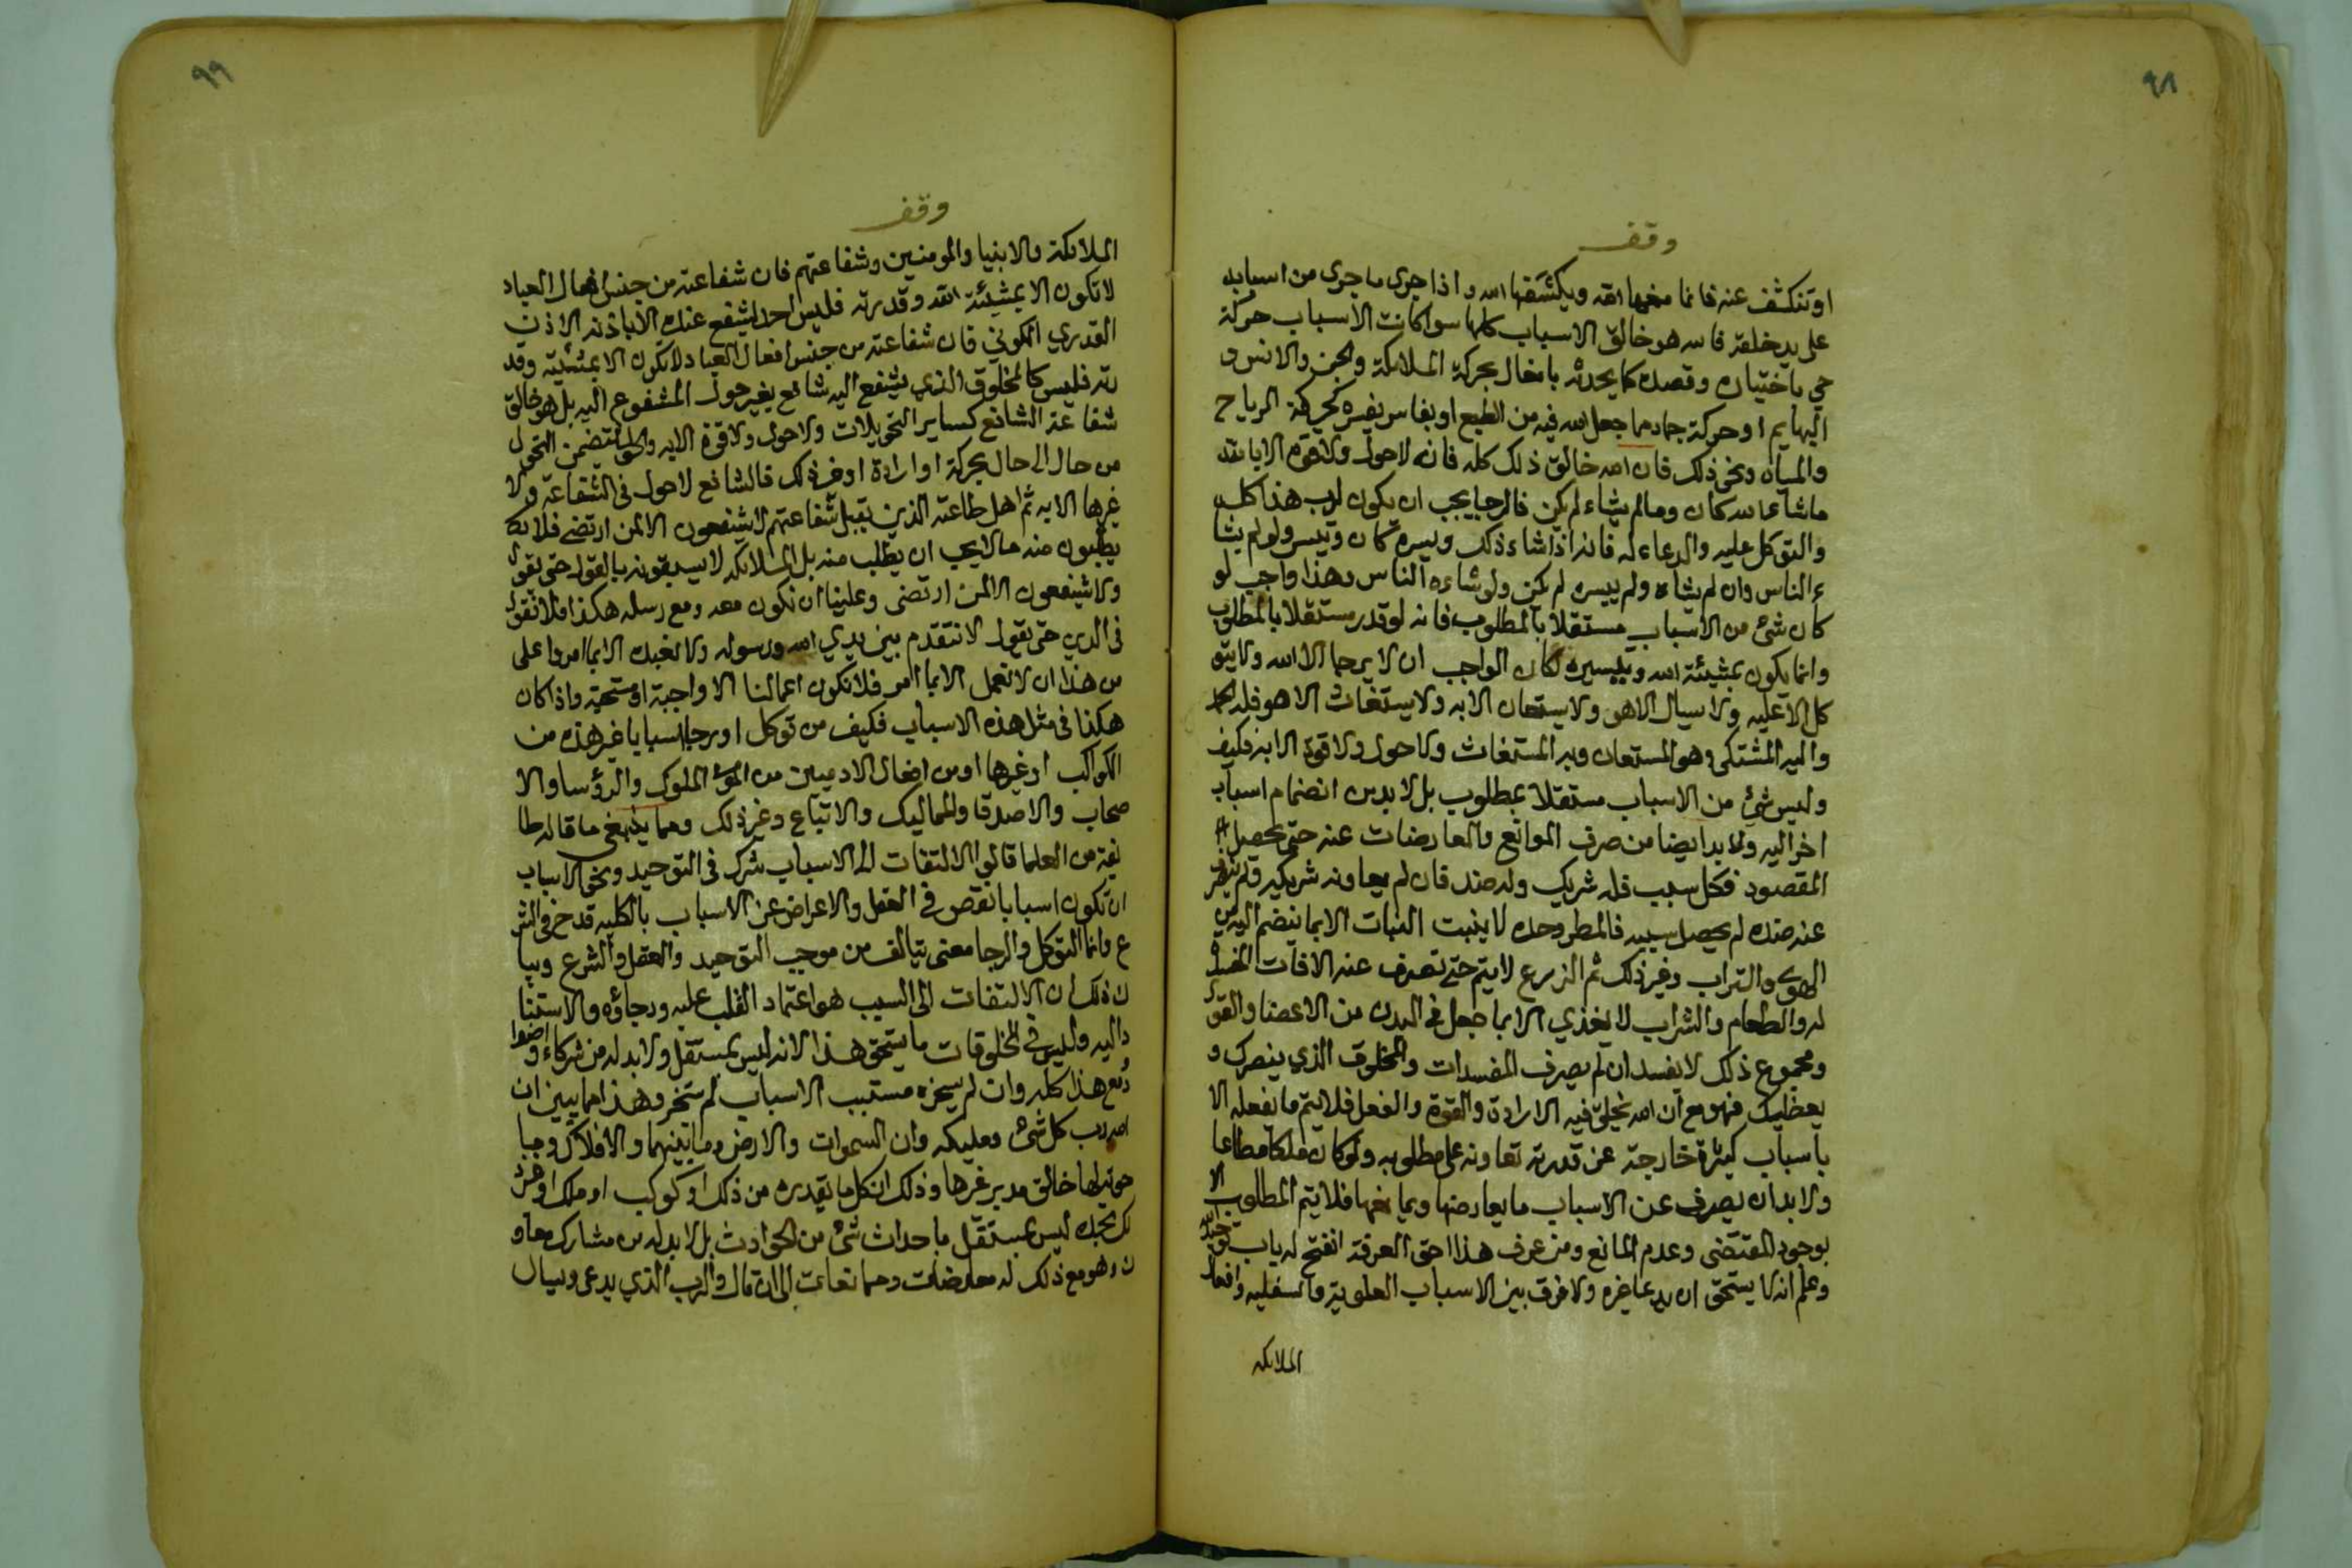 ٩٨
وقف
او تنكشف عنه فانما يمنعها الله ويكشفها الله واذا جرى ما جرى من اسبابه
على يد خلقه فالله هو خالق الاسباب كلها سوا كانت الاسباب حركة
حي باختياره وقصده كما يحدثه بافعال بحركة الملائكة والجن والانس و
البهايم او حركة جماد مما جعل الله فيه من الطبع او بقاسر يقسره كحركة الرياح
والمياه ونحو ذلك فان الله خالق ذلك كله فانه لاحول ولاقوة الا بالله
ماشاء الله كان ومالم يشاء لم يكن فالرجا يجب ان يكون لرب هذا كله
والتوكل عليه والدعاء له فانه اذا شاء ذلك ويسره كان وتيسر ولو لم يشا
ء الناس وان لم يشاء ولم ييسره لم يكن ولو شاءه الناس وهذا واجب لو
كان شئ من الاسباب مستقلا بالمطلوب فانه لو قدر مستقلا بالمطلوب
وانما يكون بمشيئة الله وتيسيره لكان الواجب ان لا يرجا الا الله ولايتو
كل الا عليه ولا يسال الا هو ولا يستعان الا به ولا يستغاث الا هو فله الحمد
واليه المشتكى وهو المستعان وبه المستغاث ولاحول ولاقوة الا به فكيف
وليس شئ من الاسباب مستقلا بمطلوب بل لابد من انضمام اسباب
اخر اليه ولابد ايضا من صرف الموانع والمعارضات عنه حتى يحصل
المقصود فكل سبب فله شريك وله ضد فان لم يعاونه شريكه ولم يصرف
عنه ضده لم يحصل سببه فالمطر وحده لا ينبت النبات الا بما ينضم اليه من
الهوى والتراب وغير ذلك ثم الزرع لايتم حتى تصرف عنه الافات المفسدة
له والطعام والشراب لا يغذي الا بما جعل في البدن من الاعضا والقوى
ومجموع ذلك لا يفسد ان لم يصرف المفسدات والمخلوق الذي ينصرك و
يعطيك فهو مع ان الله يخلق فيه الارادة والقوة والفعل فلا يتم ما يفعله الا
باسباب كثيرة خارجة عن قدرته تعاونه على مطلوبه ولو كان ملكا مطاعا
ولابد ان يصرف عن الاسباب ما يعارضها ويمانعها فلايتم المطلوب الا
بوجود المقتضى وعدم المانع ومن عرف هذا احق المعرفة انفتح له باب توحيد الله
وعلم انه لا يستحق ان يدعا غيره ولا فرق بين الاسباب العلوية والسفليه وافعال
الملائكه
٩٩
وقف
الملائكة والانبيا والمومنين وشفاعتهم فان شفاعته من جنس افعال العباد
لاتكون الا بمشيئة الله وقدرته فليس احد يشفع عنده الا باذنه الاذن
القدري الكوني فان شفاعته من جنس افعال العباد لاتكون الا بمشيئته وقد
رته فليس كالمخلوق الذي يشفع اليه شافع بغير حول المشفوع اليه بل هو خالق
شفاعة الشافع كساير التحويلات ولاحول ولاقوة الا به والحول يتضمن التحول
من حال الى حال بحركة او ارادة او غير ذلك فالشافع لاحول في الشفاعة ولا
غيرها الا به ثم اهل طاعته الذين يقبل شفاعتهم لا يشفعون الا لمن ارتضى فلا
يطلبون منه مالا يحب ان يطلب منه بل الملائكه لا يسبقونه بالقول حتى يقول
ولا يشفعون الا لمن ارتضى وعلينا ان نكون معه ومع رسله هكذا فلا نقول
في الدين حتى يقول لا نتقدم بين يدي الله ورسوله ولا نعبده الا بما امر واعلى
من هذا ان لا نعمل الا بما امر فلا تكون اعمالنا الا واجبة او مستحبة واذا كان
هكذا في مثل هذه الاسباب فكيف من توكل او رجا اسبابا غير هذه من
الكواكب او غيرها او من افعال الادميين من الملوك والرؤسا والا
صحاب والاصدقا والمماليك والاتباع وغير ذلك ومما ينبغي ما قاله طا
ئفة من العلما قالوا الالتفات الى الاسباب شرك في التوحيد ونحو الاسباب
ان تكون اسبابا نقص في العقل والاعراض عن الاسباب بالكليه قدح في الشر
ع وانما التوكل والرجا معنى يتالف من موجب التوحيد والعقل والشرع وبيا
ن ذلك ان الالتفات الى السبب هو اعتماد القلب عليه ورجاؤه والاستنا
د اليه وليس في المخلوقات ما يستحق هذا لانه ليس بمستقل ولابد له من شركاء واضدا
ومع هذا كله وان لم يسخره مسبب الاسباب لم يتسخر وهذا مما يبين ان
الله رب كل شئ ومليكه وان السموات والارض وما بينهما والافلاك وما
حوته لها خالق مدبر غيرها وذلك ان كل ما يقدره من ذلك او كوكب او ملك او غير ذ
لك تجده ليس بمستقل باحداث شئ من الحوادث بل لابد له من مشارك معاو
ن وهو مع ذلك له معارضات وممانعات الى ان قال والرب الذي يدعى ويسال